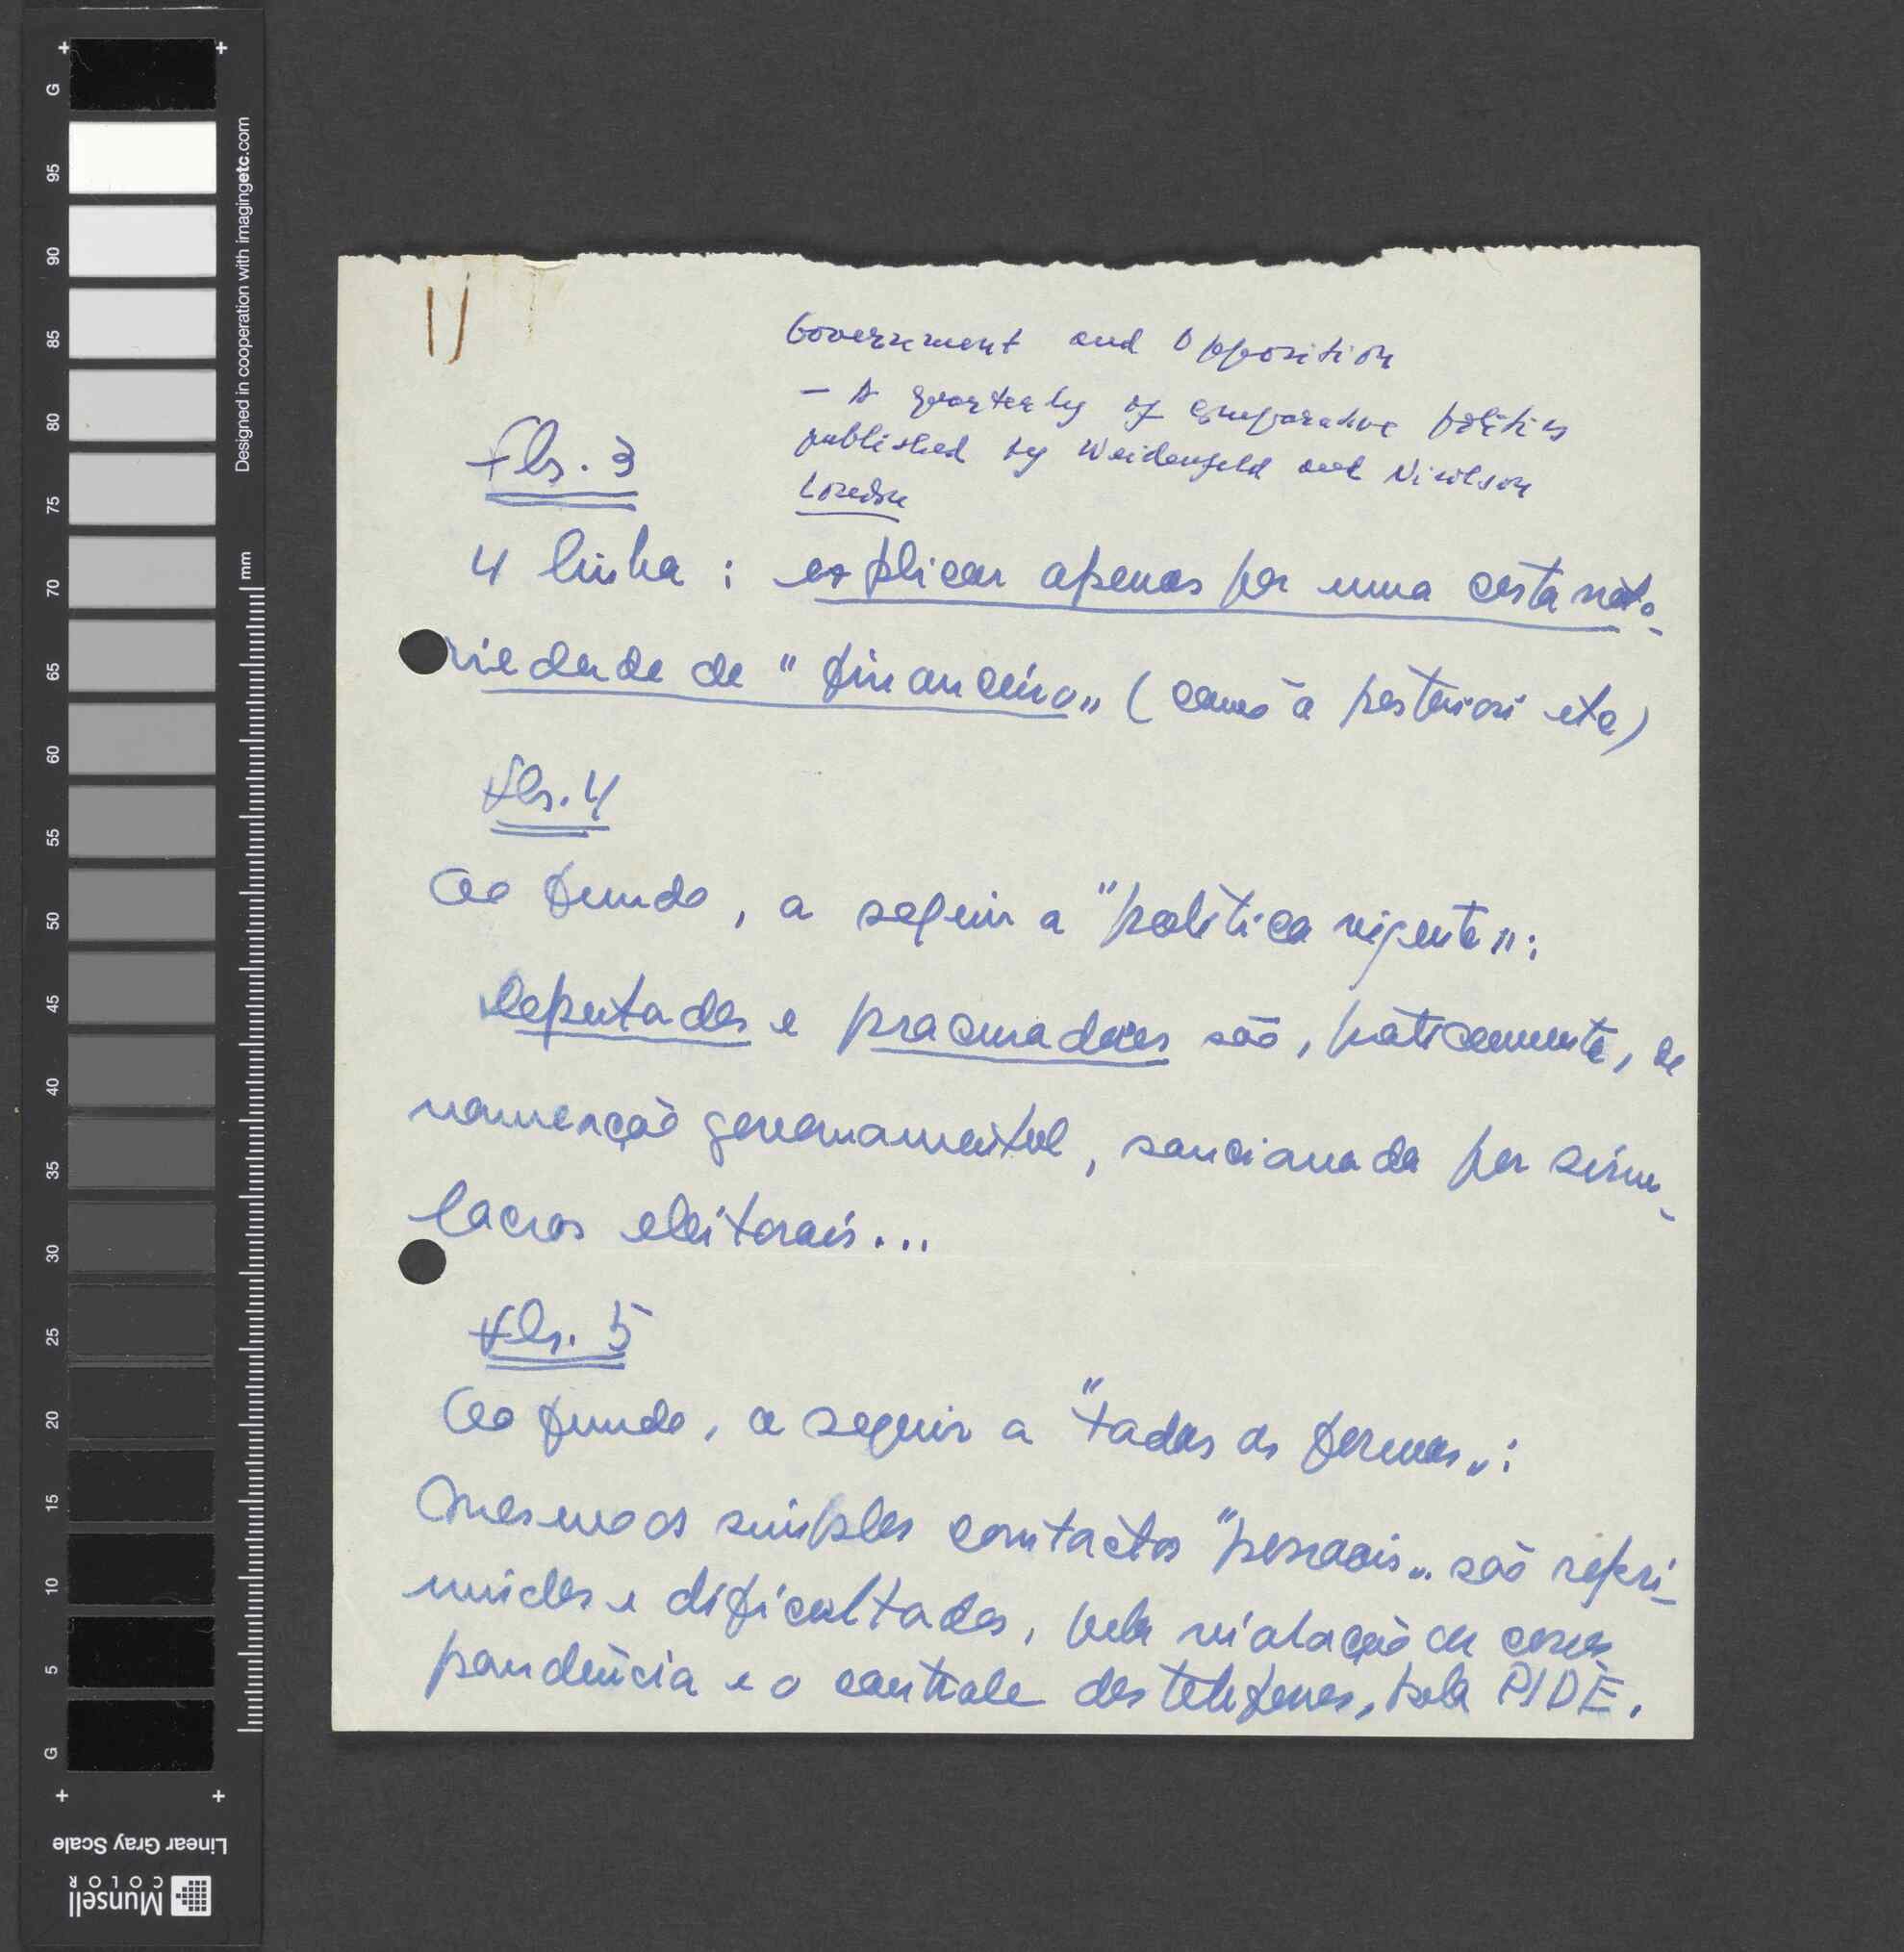 Government and Opposition
– A quarterly of comparative politics
published by Weidenfeld and Nicolson
London
fls. 3
4 linha : explicar apenas por uma certa noto-
riedade de "financeiro" (como à posteriori etc)
fls. 4
Ao fundo, a seguir a "política vigente":
Deputados e procuradores são, práticamente, de
nomeação governamental, sancionada por simu-
lacros eleitorais...
fls. 5
Ao fundo, a seguir a "todas as formas":
Mesmo os simples contactos "pessoais" são repri-
midos e dificultados, pela violação da corres-
pondência e o controle dos telefones, pela PIDE.
G
95
90
85
80
75
70
65
60
55
50
45
40
35
30
25
20
15
10
5
G
Designed in cooperation with imagingetc.com
mm
Linear Gray Scale
Munsell
COLOR